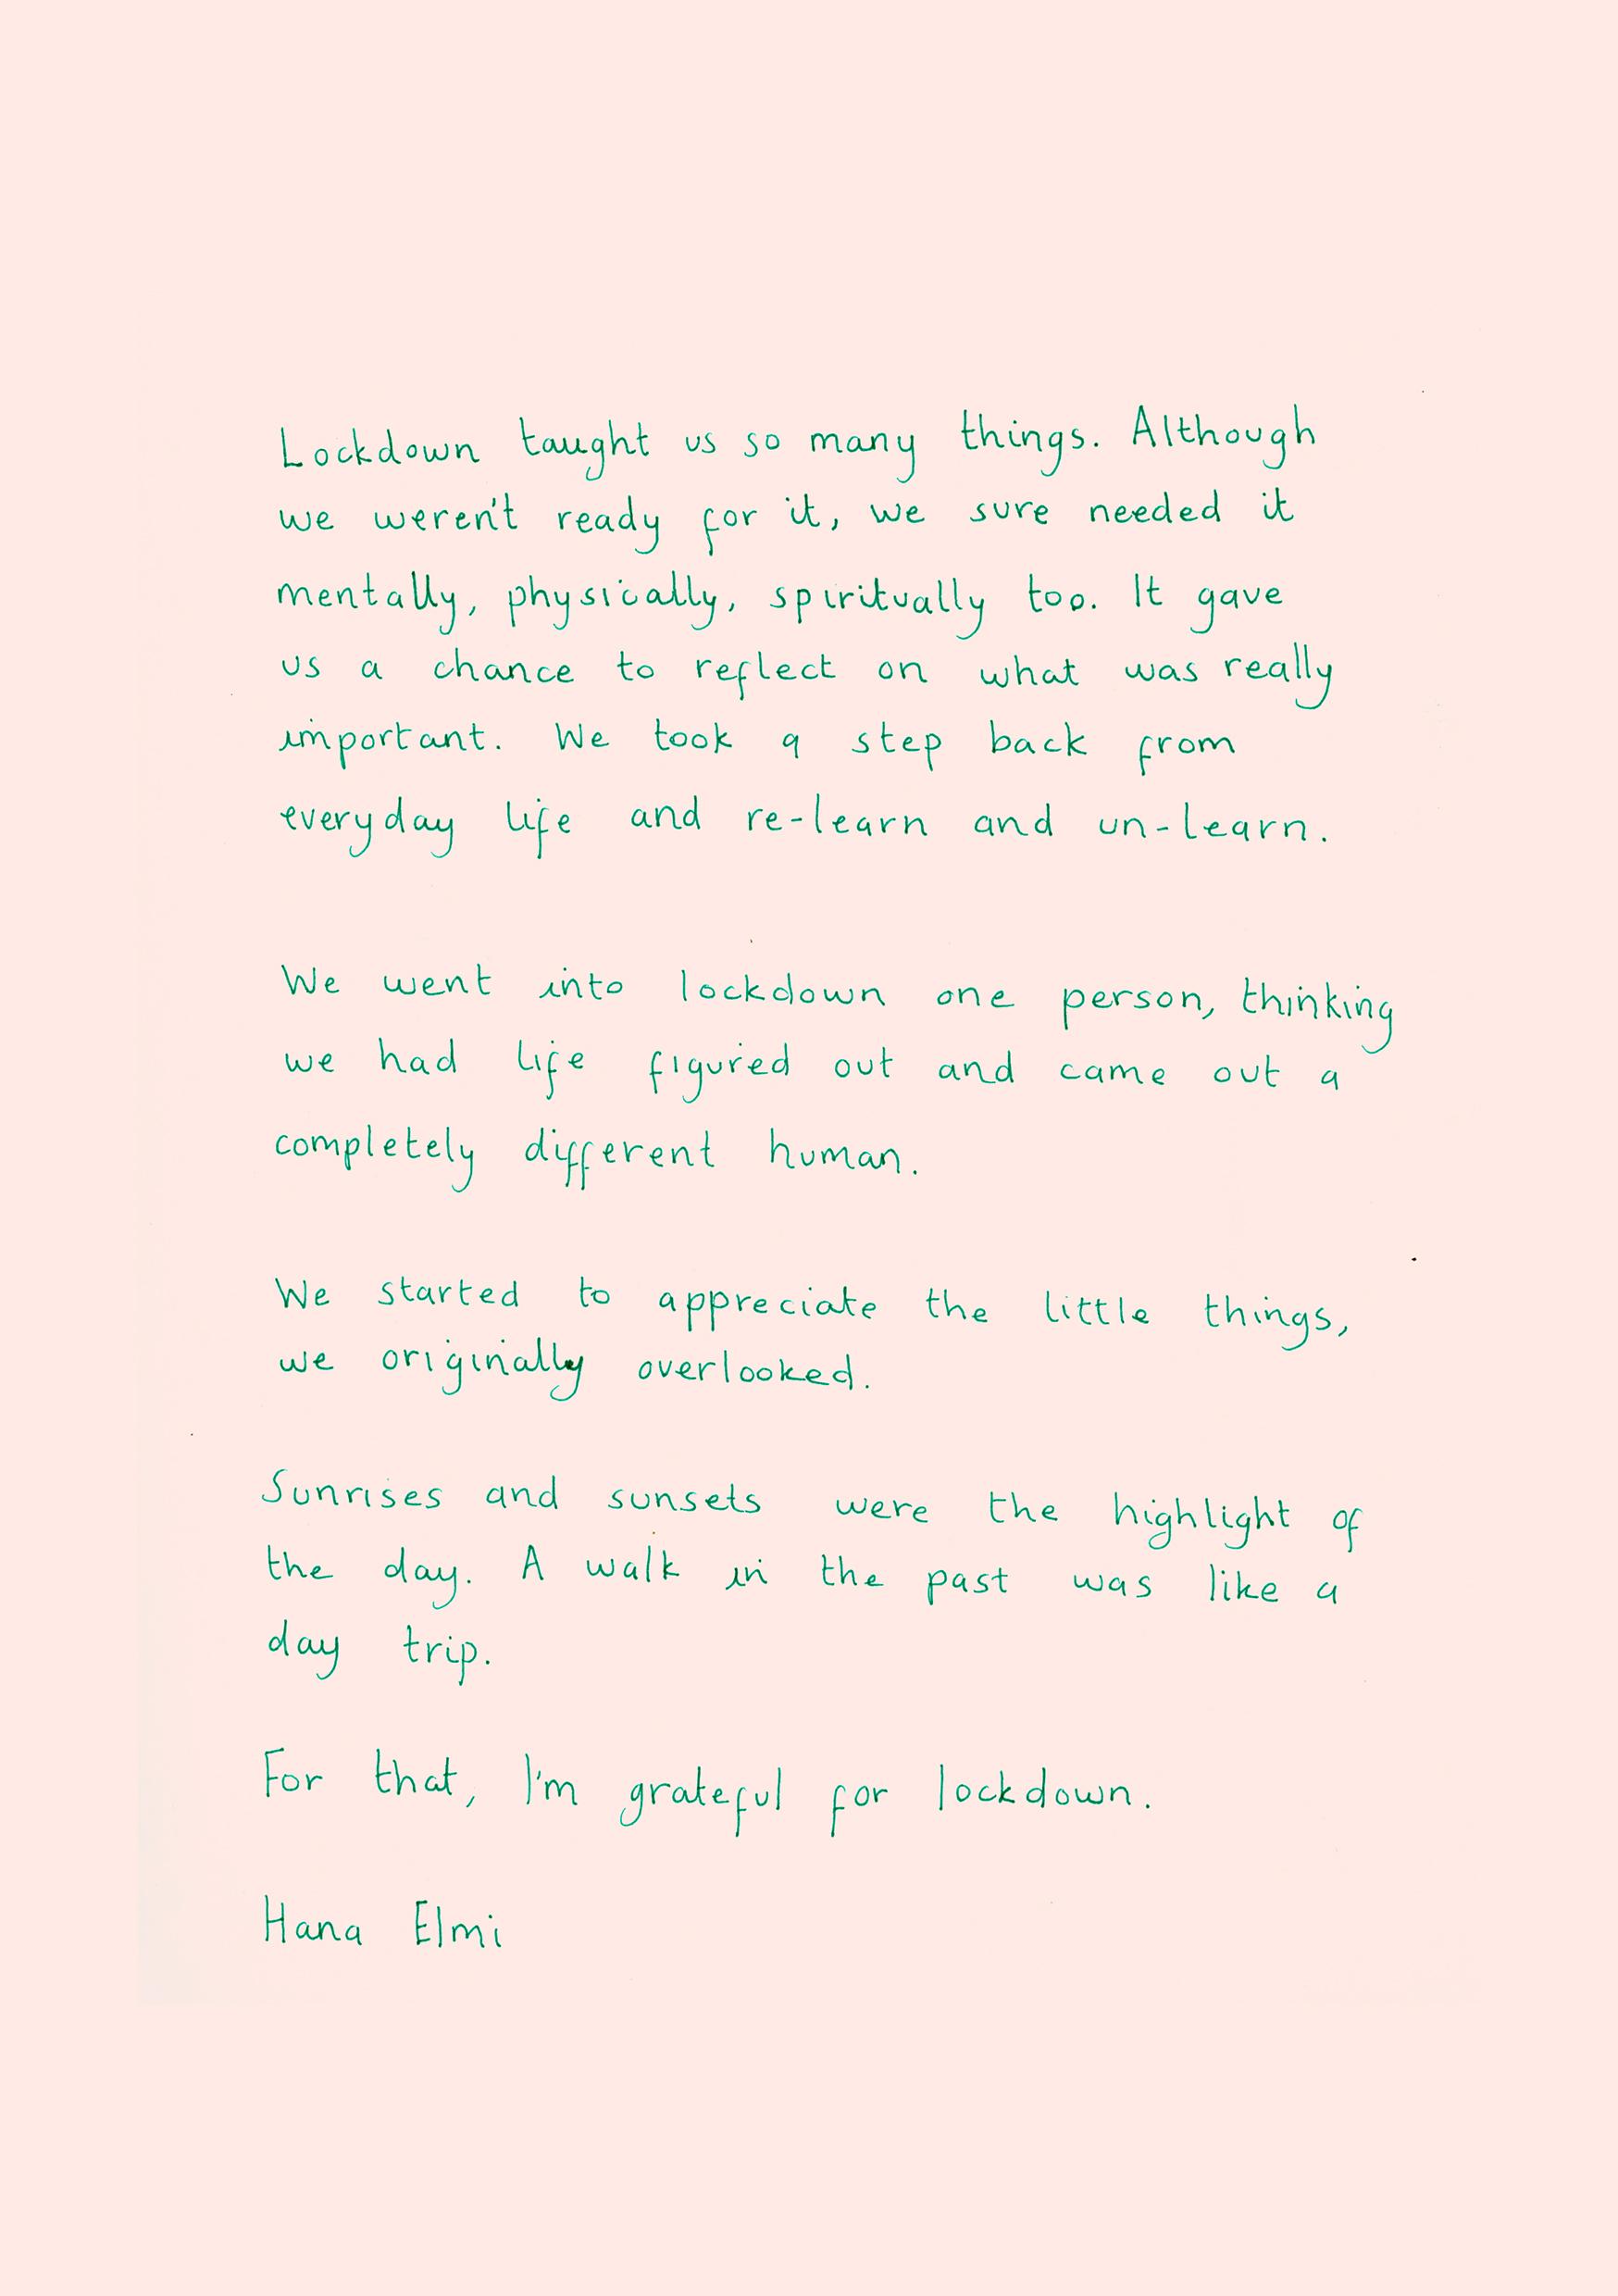 Lockdown taught us so many things. Although
we weren't ready for it, we sure needed it
mentally, physically, spiritually too. It gave
us a chance to reflect on what was really
important. We took a step back from
everyday life and re-learn and un-learn.
We went into lockdown one person, thinking
we had life figured out and came out a
completely different human.
We started to appreciate the little things,
we originally overlooked.
Sunrises and sunsets were the highlight of
the day. A walk in the past was like a
day trip.
For that, I'm grateful for lockdown.
Hana Elmi